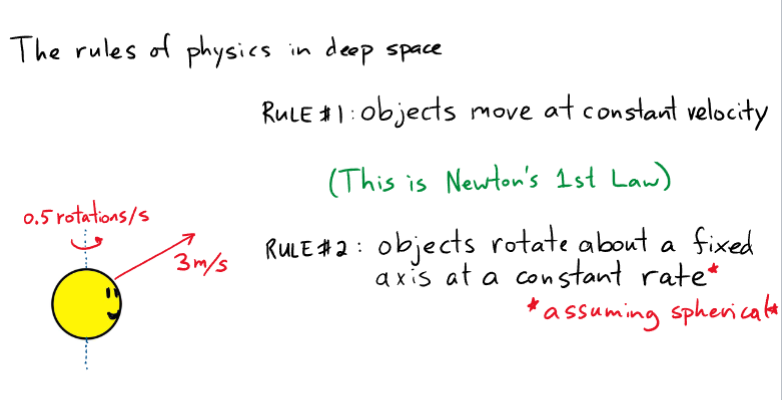 The rules of physics in deep space
RULE #1: objects move at constant velocity
(This is Newton's 1st Law)
0.5 rotations/s
3m/s
RULE #2: objects rotate about a fixed
axis at a constant rate*
*assuming spherical*